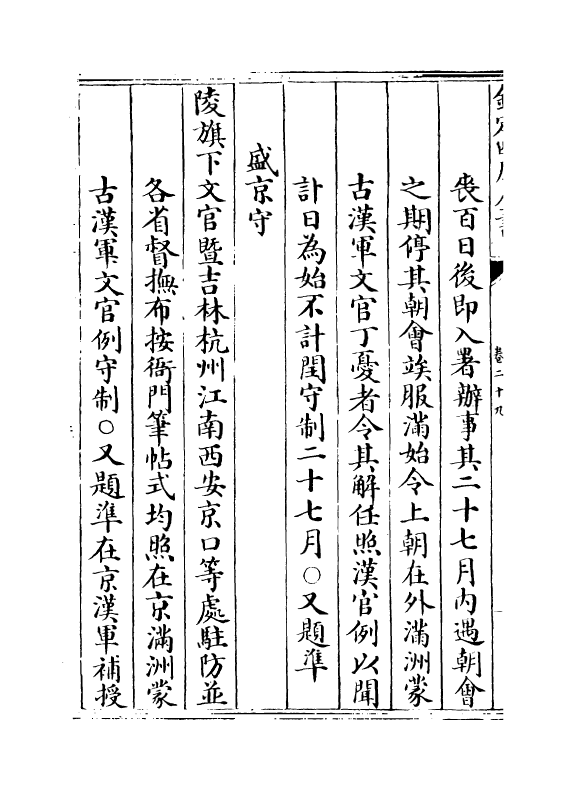 欽定四庫全書
卷二十九
喪百日後即入署辦事其二十七月内遇朝會
之期停其朝會俟服滿始令上朝在外滿洲蒙
古漢軍文官丁憂者令其解任照漢官例以聞
計日為始不計閏守制二十七月○又題準
盛京守
陵旗下文官暨吉林杭州江南西安京口等處駐防並
各省督撫布按衙門筆帖式均照在京滿洲蒙
古漢軍文官例守制○又題準在京漢軍補授